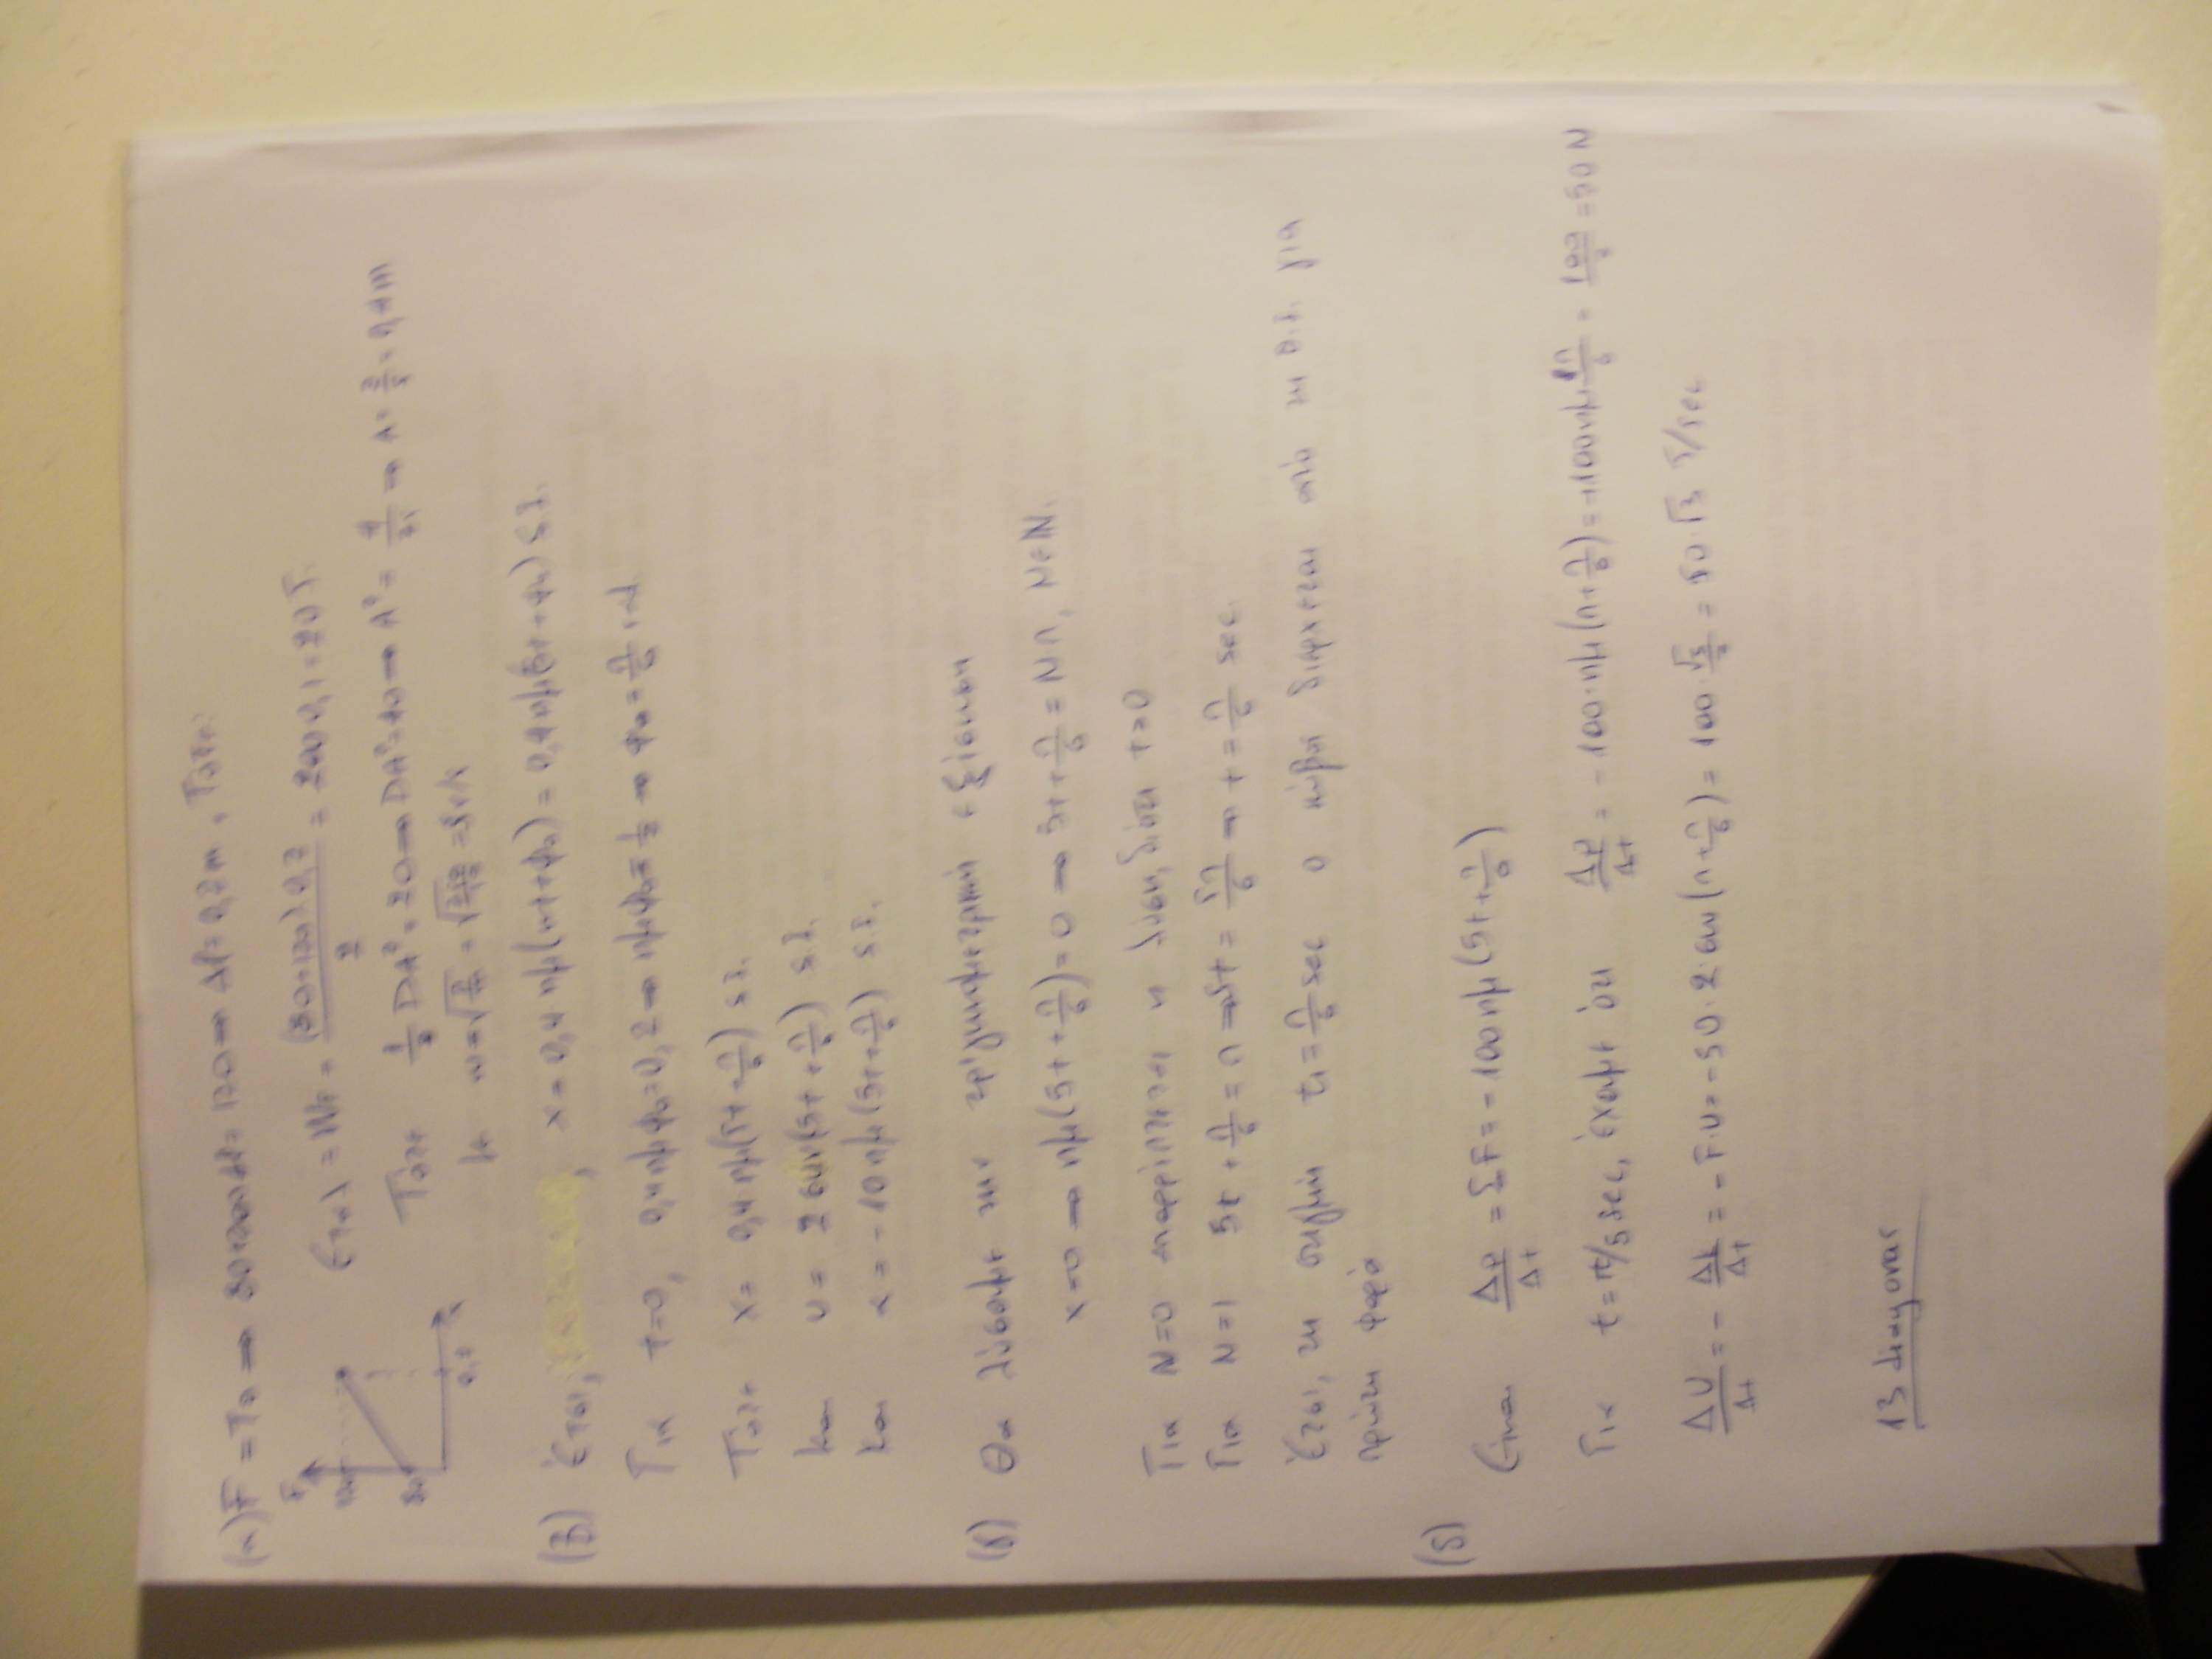 (α) F = Tο ⇒ 80+200Δl = 120 ⇒ Δl = 0,2m. Τότε
Eταλ = WF = (80+120)·0,2 / 2 = 200·0,1 = 20J.
F
120
80
0,2
x
Τότε ½DA² = 20 ⇒ DA² = 40 ⇒ A² = ⇒ A = = 0,4m
με ω = = 5r/s
(β) Έτσι, x = 0,4ημ(ωt+φ₀) = 0,4ημ(5t+φ₀) S.I.
Για t=0, 0,4ημφ₀ = 0,2 ⇒ ημφ₀ = ½ ⇒ φ₀ = π/6 rad
Τότε x = 0,4ημ(5t+π/6) S.I.
και υ = 2συν(5t+π/6) S.I.
και α = -10ημ(5t+π/6) S.I.
(γ) Θα λύσουμε την τριγωνομετρική εξίσωση
x=0 ⇒ ημ(5t+π/6)=0 ⇒ 5t+π/6 = Nπ, N∈ℕ.
Για N=0 απορρίπτεται η λύση, διότι t≥0
Για N=1 5t+π/6 = π ⇒ 5t = 5π/6 ⇒ t = π/6 sec.
Έτσι, τη στιγμή t₁ = π/6 sec ο κύβος διέρχεται από τη Θ.Ι. για
πρώτη φορά
(δ) Είναι Δp/Δt = ΣF = -100ημ(5t+π/6)
Για t = π/5 sec, έχουμε ότι Δp/Δt = -100·ημ(π+π/6) = +100ημπ/6 = 100/2 = 50N
ΔU/Δt = -ΔK/Δt = -F·υ = -50·2·συν(π+π/6) = 100·√3/2 = 50·√3 J/sec